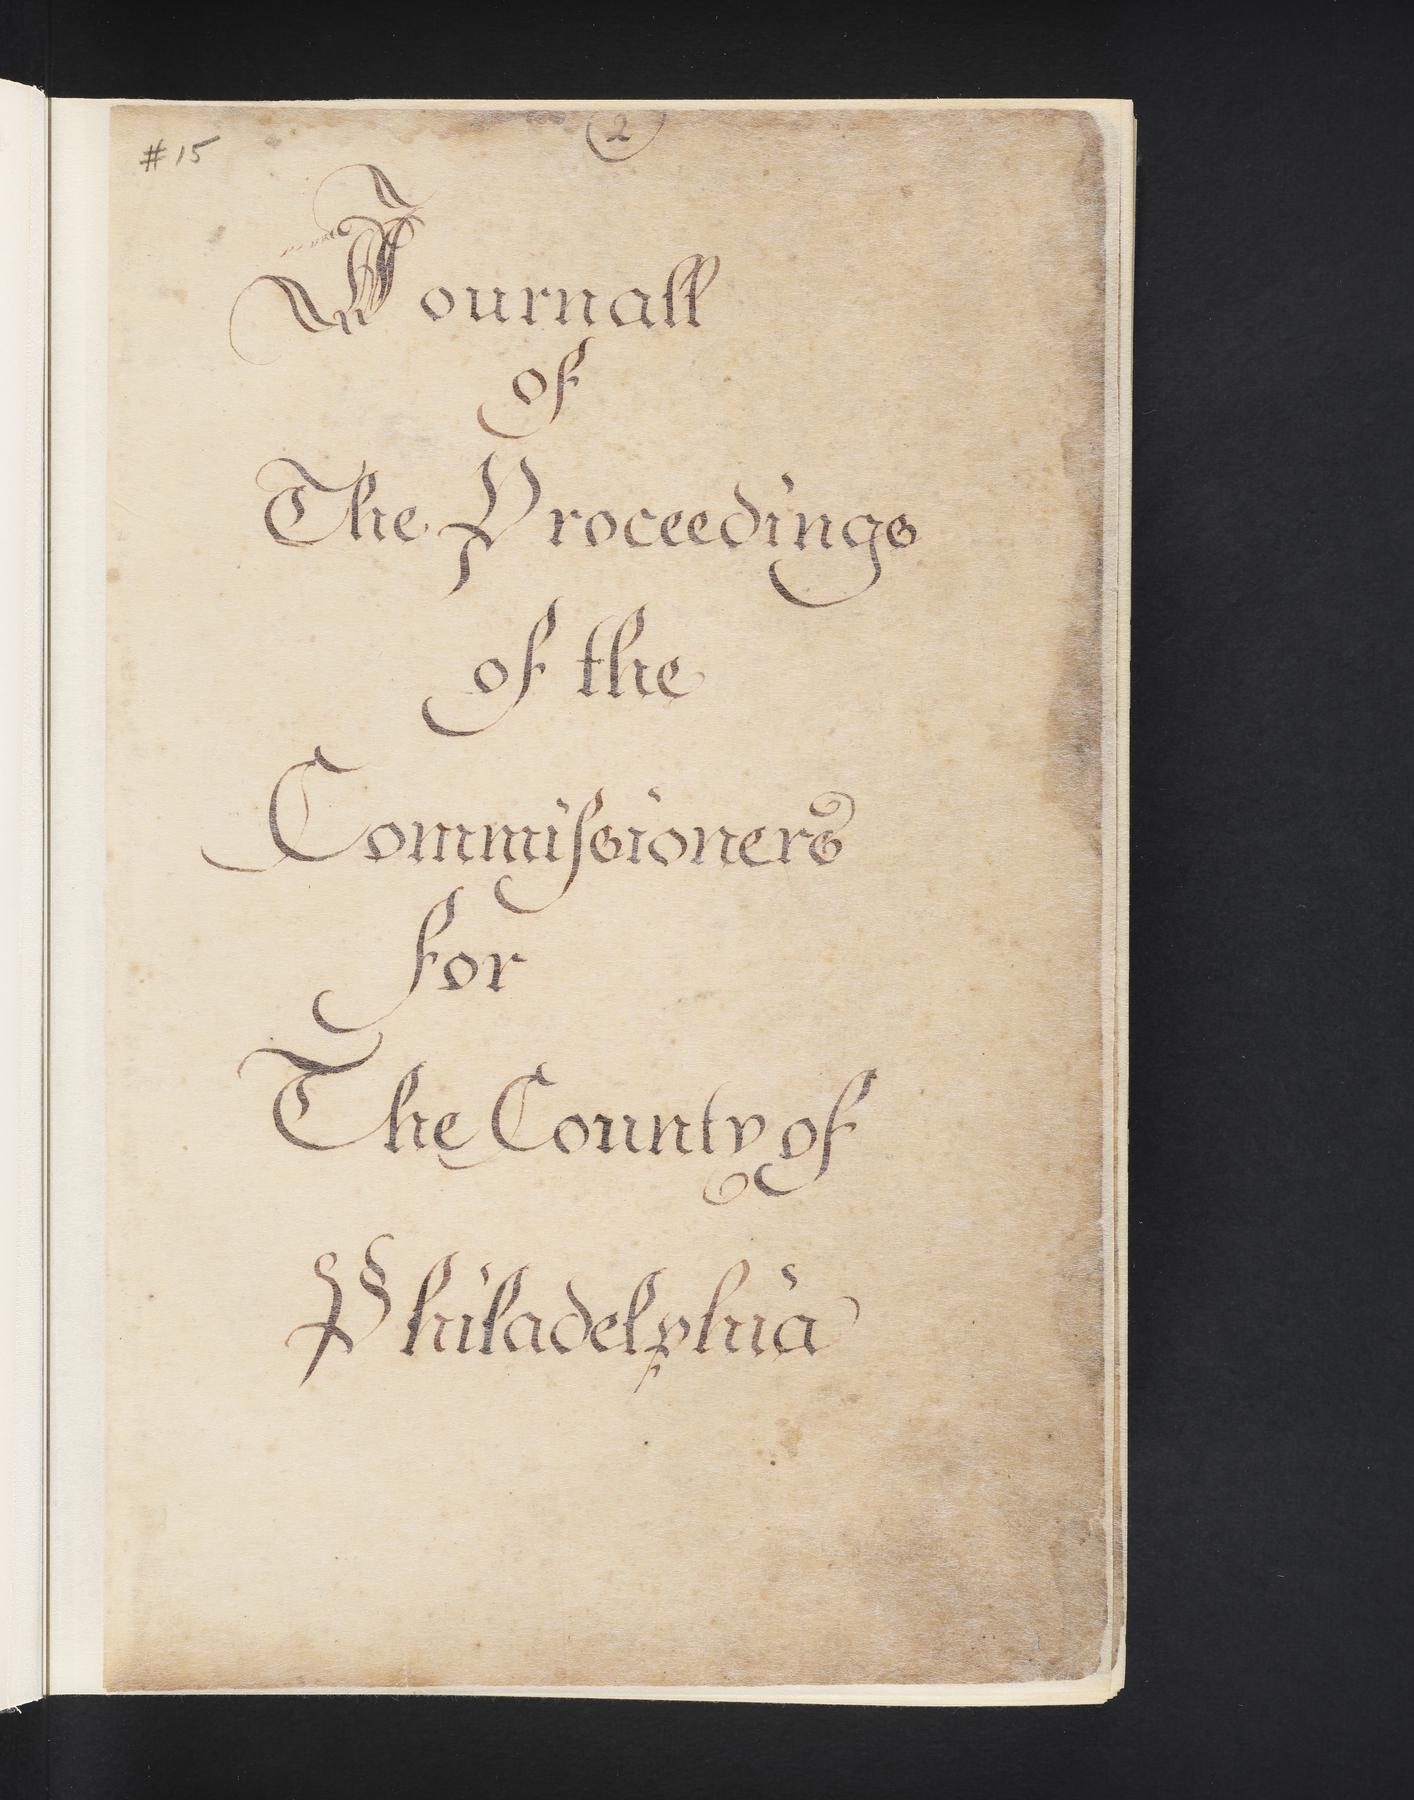 #15
2
Journall
of
The Proceedings
of the
Commiſsioners
for
The County of
Philadelphia